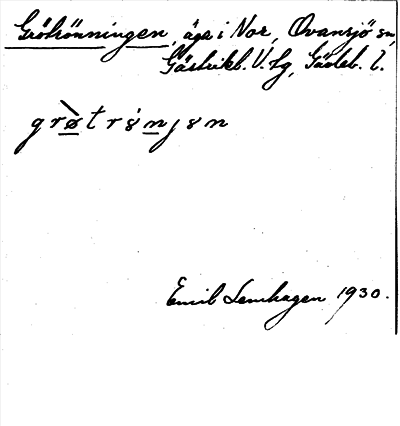 Grötrönningen, äga i Nor, Ovansjö sn,
Gästrikl. V. hg, Gävleb. l.
grø̀trȣnȷȣn
Emil Lenhagen 1930.